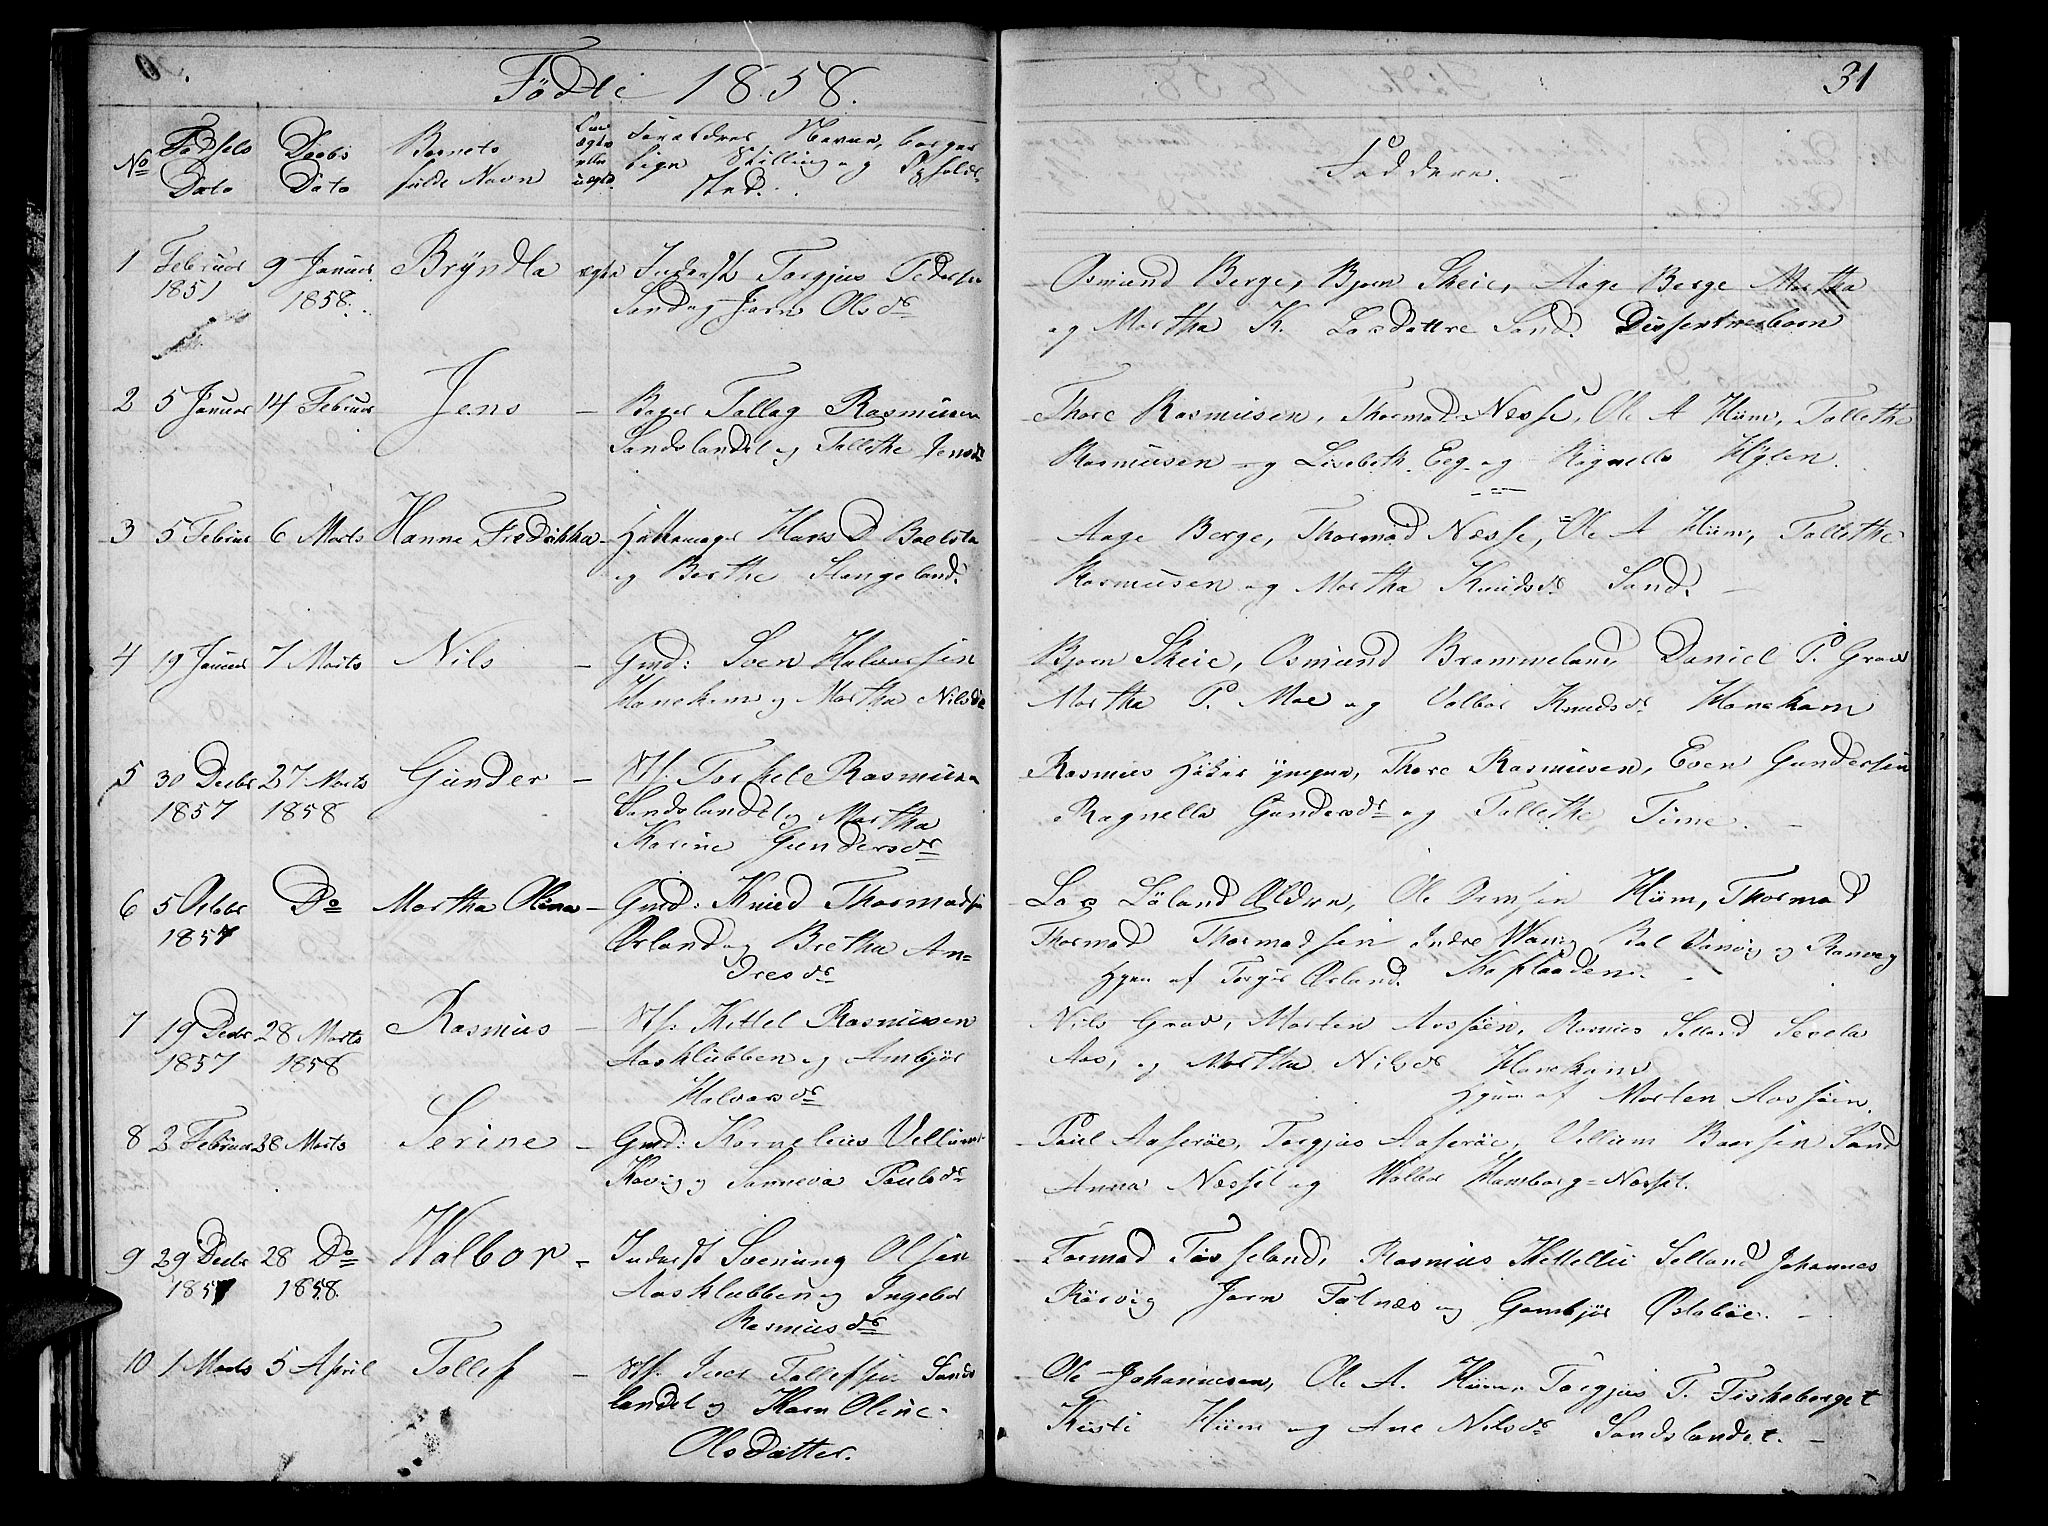 Födte 1858.
31
No
Födsels Dato
Daabs Dato
Barnets fulde Navn
Om ægte eller uægte
Foreldres Navne, borger
lign Stilling og Opholds
sted.
Faddere.
1 Februar 9 Januar Bryndla ægte Inderst Torgjus Pedersen
1851 1858. Sand og Jorn Olsdr
Osmund Berge, Bjorn Skeie, Aage Berge Martha
og Martha K. Larsdattre Sand. Dissenterebarn
2 5 Januar 14 Februar Jens — Bager Tallag Rasmusen
Sandslandet og Tallethe Jensdr
Thore Rasmusen, Thormod Nesse, Ole A Hiim, Tallethe
Rasmusen og Lisebeth Eeg og Ragnella Hylen.
3 5 Februar 6 Marts Hanne Fredrikka — Hattemager Hans D
og Berthe Stangeland.
Aage Berge, Thormod Nesse, Ole A Hiim, Tallethe
Rasmusen og Martha Knudsdr Sand. —
4 19 Januar 7 Marts Nils — Gmd: Sven Halvorsen
Honekam og Martha Nilsdr
Bjorn Skeie, Osmund Brommeland, Daniel P. Grov
Martha P. Moe og Valbor Knudsdr Honekam
5 30 Decbr 27 Marts Gunder — Torkele Rasmusen
1857 1858 Sandslandet og Martha
Karine Gundersdr
Rasmus, Thore Rasmusen, Even Gundersen
Ragnella Gundersdr og Tallethe Time. —
6 5 Octobr Do Martha Olina — Gmd: Knud Thormodsen
1857 Orland og Bretha An=
dresdr
Lars Löland Ældre, Ole Hiim, Thormod
Thormod Thormodsen Indre og Ranveg
Hgen af Torgjer Orland.
7 19 Decbr 28 Marts Rasmus — Kittel Rasmusen
1857 1858 Aasklubben og Ambjör
Halvorsdr
Nils Grov, Morten Aasöen, Rasmus Selland
Aas, og Martha Nilsdr Honekam
af Morten Aasöen.
8 2 Februar 28 Marts Serine — Gmd: Kornelius
og Sanneva Paulsdr
Paul Aaseröe, Torgjus Aaseröe, Villium Baarsen Sand
Anna Nesset og Walbor Hamborg=Nesset.
9 29 Decbr 28 Do Walbor — Inderst Sveinung Olsen
1857 1858. Aasklubben og Ingebor
Rasmusdr
Tormod Tosseland, Rasmus Selland Johannes
Rörvig Jorn Fatnes og Gambjör Östaböe. —
10 1 Marts 5 April Tollef — Iver Tollefsen Sands
landet og Karn Oline
Olsdatter.
Ole Johannesen, Ole A. Hiim, Torgjus T. Fiskeberget
Kirsti Hiim og Ane Nilsdr Sandslandet. —